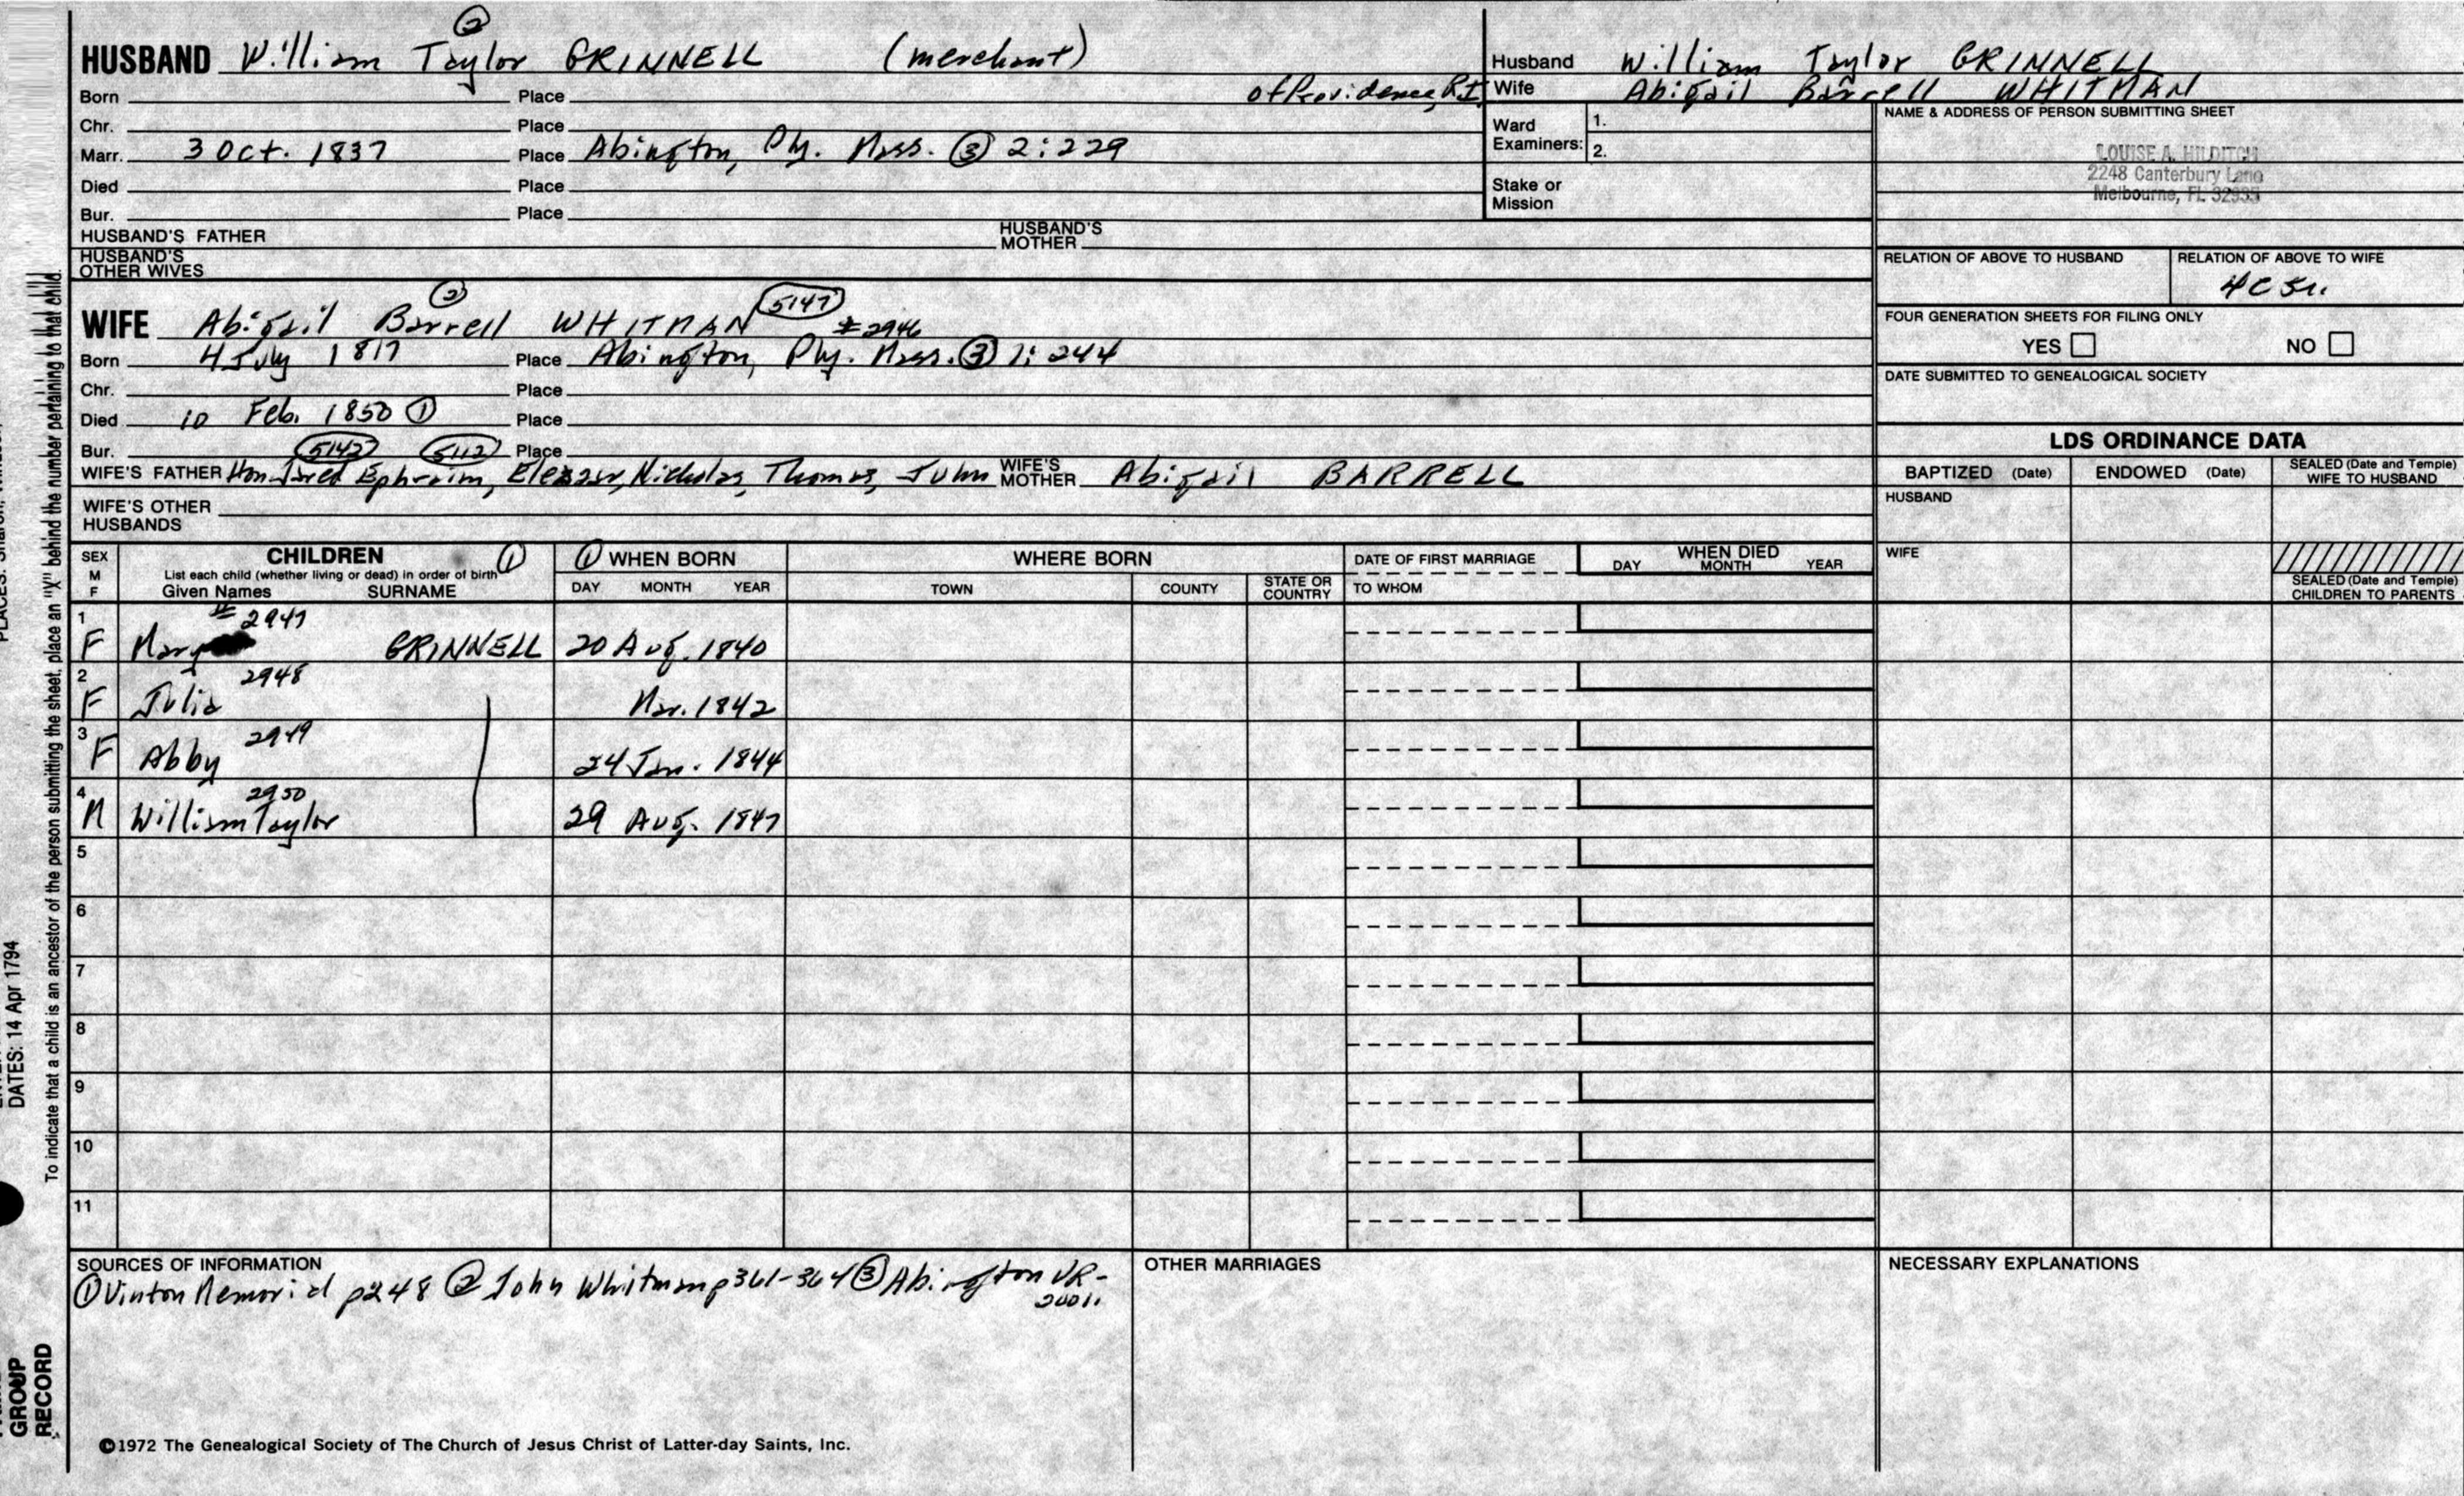 ②
HUSBAND William Taylor GRINNELL (merchant)
of Providence, RI
Born Place
Chr. Place
Marr. 3 Oct. 1837 Place Abington, Ply. Mass. ③ 2:229
Died Place
Bur. Place
HUSBAND'S FATHER HUSBAND'S MOTHER
HUSBAND'S OTHER WIVES
Husband William Taylor GRINNELL
Wife Abigail Barrell WHITMAN
Ward Examiners: 1.
2.
Stake or Mission
NAME & ADDRESS OF PERSON SUBMITTING SHEET
LOUISE A. HILDITCH
2248 Canterbury Lane
Melbourne, FL 32935
RELATION OF ABOVE TO HUSBAND RELATION OF ABOVE TO WIFE
4C5r.
FOUR GENERATION SHEETS FOR FILING ONLY
YES NO
DATE SUBMITTED TO GENEALOGICAL SOCIETY
② 5147
WIFE Abigail Barrell WHITMAN #2946
Born 4 July 1817 Place Abington, Ply. Mass. ③ 1:244
Chr. Place
Died 10 Feb. 1850 ① Place
Bur. 5142 5112 Place
WIFE'S FATHER Hon Jared Ephraim, Eleazar, Nicholas, Thomas, John WIFE'S MOTHER Abigail BARRELL
WIFE'S OTHER HUSBANDS
LDS ORDINANCE DATA
BAPTIZED (Date) ENDOWED (Date) SEALED (Date and Temple) WIFE TO HUSBAND
HUSBAND
WIFE
SEALED (Date and Temple) CHILDREN TO PARENTS
SEX M F
CHILDREN ①
List each child (whether living or dead) in order of birth
Given Names SURNAME
① WHEN BORN
DAY MONTH YEAR
WHERE BORN
TOWN COUNTY STATE OR COUNTRY
DATE OF FIRST MARRIAGE
TO WHOM
WHEN DIED
DAY MONTH YEAR
1 #2947
F Mary GRINNELL 20 Aug. 1840
2 2948
F Julia Mar. 1842
3 2949
F Abby 24 Jan. 1844
4 2950
M William Taylor 29 Aug. 1847
5
6
7
8
9
10
11
SOURCES OF INFORMATION
① Vinton Memorial p248 ② John Whitman p361-364 ③ Abington VR-
OTHER MARRIAGES
NECESSARY EXPLANATIONS
©1972 The Genealogical Society of The Church of Jesus Christ of Latter-day Saints, Inc.
To indicate that a child is an ancestor of the person submitting the sheet, place an "X" behind the number pertaining to that child.
DATES: 14 Apr 1794
GROUP
RECORD